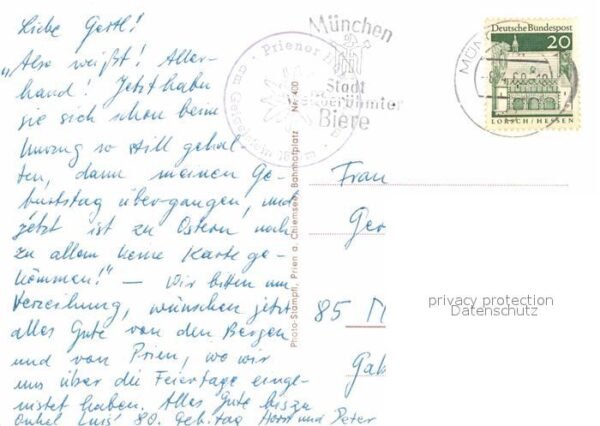 Liebe Gertl!
„Also weißt! Aller-
hand! Jetzt haben
sie sich schon beim
Umzug so still gehal-
ten, dann meinen Ge-
burtstag übergangen, und
jetzt ist zu Ostern noch
zu allem keine Karte ge-
kommen!" — Wir bitten um
Verzeihung, wünschen jetzt
alles Gute von den Bergen
und von Prien, wo wir
uns über die Feiertage einge-
nistet haben. Alles Gute bis zu
Onkel Luis' 80. Geb.tag Horst und Peter
Priener
München
Stadt
weltberühmter
Biere
Deutsche Bundespost
20
LORSCH / HESSEN
Photo-Stampfl, Prien a. Chiemsee, Bahnhofplatz Nr. 400
Frau
Ger
85 N
Gab
privacy protection
Datenschutz